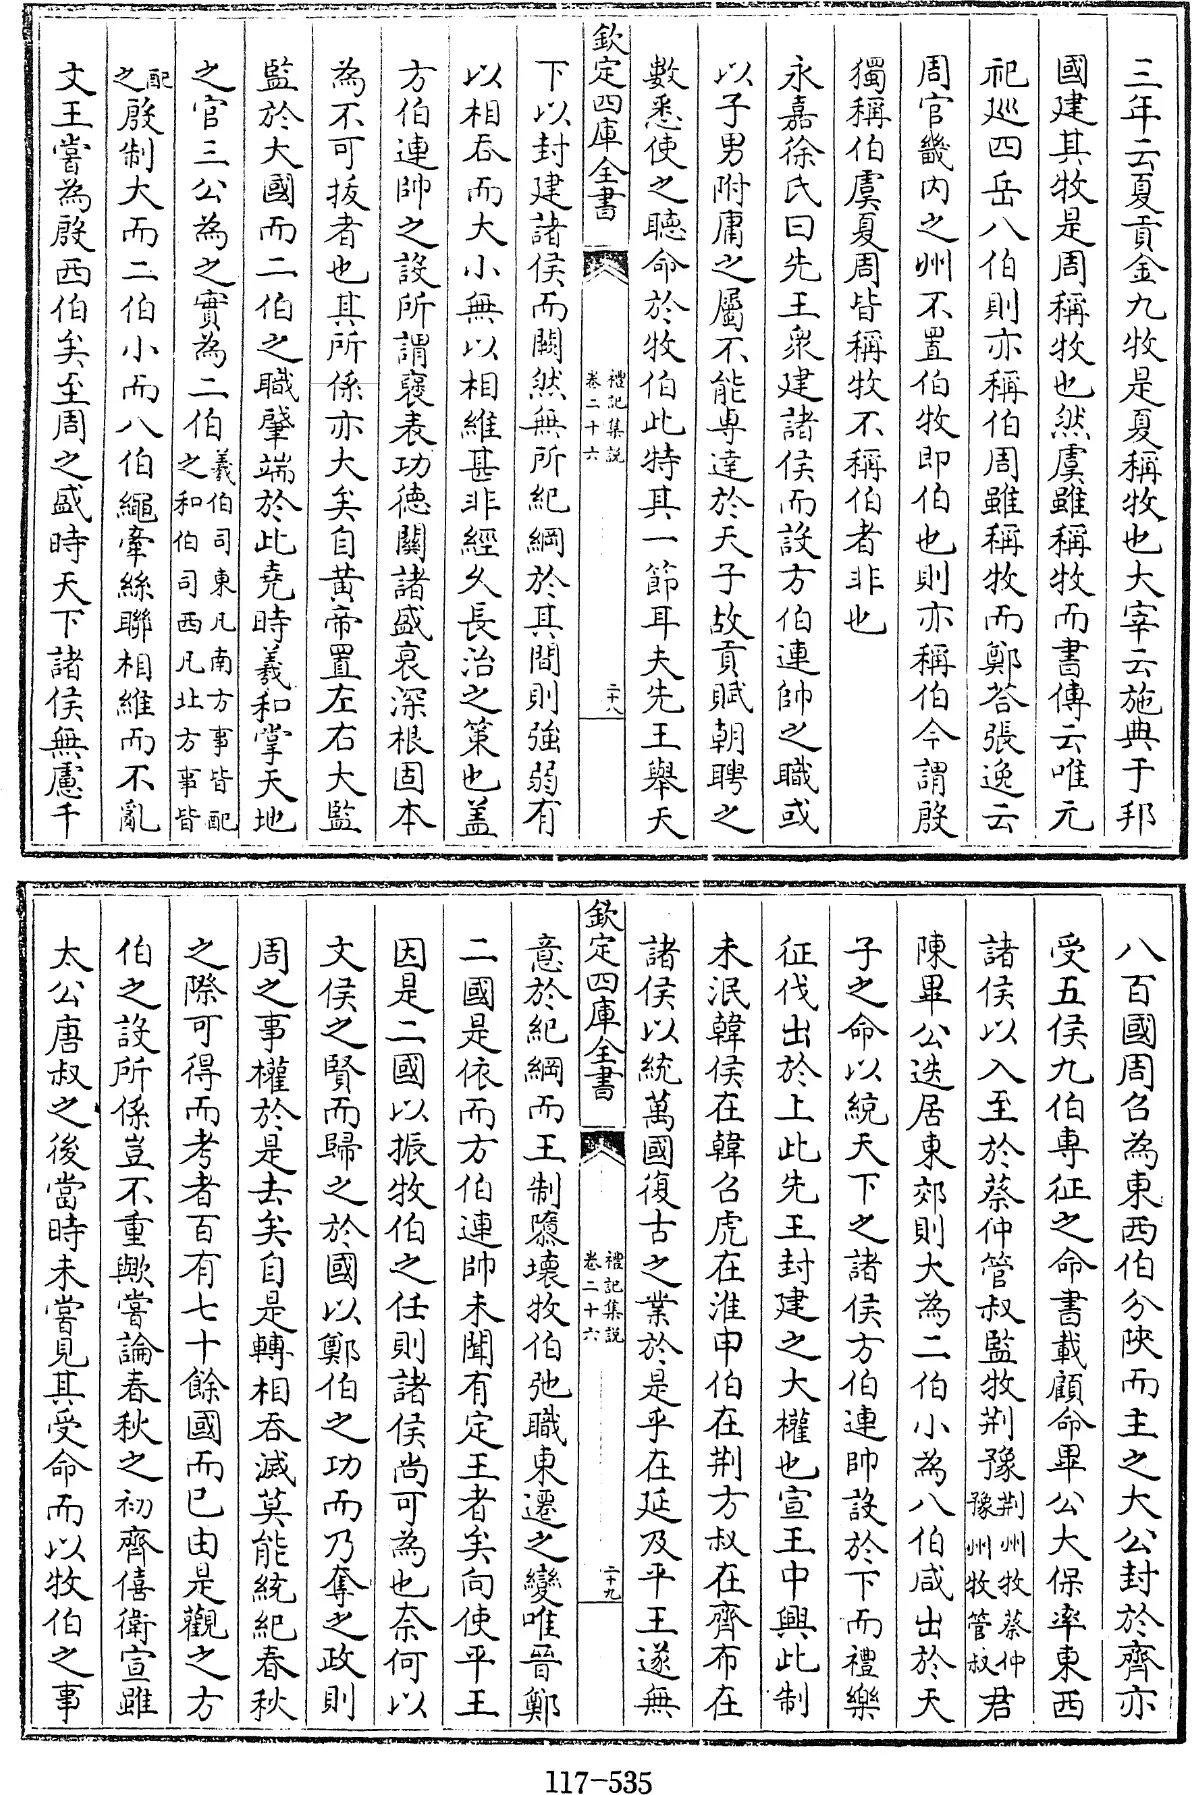 三年云夏貢金九牧是夏稱牧也大宰云施典于邦
國建其牧是周稱牧也然虞雖稱牧而書傳云唯元
祀巡四岳八伯則亦稱伯周雖稱牧而鄭荅張逸云
周官畿内之州不置伯牧即伯也則亦稱伯今謂殷
獨稱伯虞夏周皆稱牧不稱伯者非也
永嘉徐氏曰先王衆建諸侯而設方伯連帥之職或
以子男附庸之屬不能専達於天子故貢賦朝聘之
數悉使之聽命於牧伯此特其一節耳夫先王舉天
欽定四庫全書
禮記集説
卷二十六
二十八
下以封建諸侯而闕然無所紀綱於其間則強弱有
以相吞而大小無以相維甚非經久長治之策也盖
方伯連帥之設所謂褒表功德關諸盛衰深根固本
為不可拔者也其所係亦大矣自黄帝置左右大監
監於大國而二伯之職肇端於此堯時羲和掌天地
之官三公為之實為二伯羲伯司東凡南方事皆配
之和伯司西凡北方事皆
配
之殷制大而二伯小而八伯繩牽絲聯相維而不亂
文王嘗為殷西伯矣至周之盛時天下諸侯無慮千
八百國周召為東西伯分陜而主之大公封於齊亦
受五侯九伯専征之命書載顧命畢公大保率東西
諸侯以入至於蔡仲管叔監牧荆豫荆州牧蔡仲君
豫州牧管叔
陳畢公迭居東郊則大為二伯小為八伯咸出於天
子之命以統天下之諸侯方伯連帥設於下而禮樂
征伐出於上此先王封建之大權也宣王中興此制
未泯韓侯在韓召虎在淮申伯在荆方叔在齊布在
諸侯以統萬國復古之業於是乎在延及平王遂無
欽定四庫全書
禮記集説
卷二十六
二十九
意於紀綱而王制隳壞牧伯弛職東遷之變唯晉鄭
二國是依而方伯連帥未聞有定王者矣向使平王
因是二國以振牧伯之任則諸侯尚可為也奈何以
文侯之賢而歸之於國以鄭伯之功而乃奪之政則
周之事權於是去矣自是轉相吞滅莫能統紀春秋
之際可得而考者百有七十餘國而已由是觀之方
伯之設所係豈不重歟嘗論春秋之初齊僖衛宣雖
太公唐叔之後當時未嘗見其受命而以牧伯之事
117-535